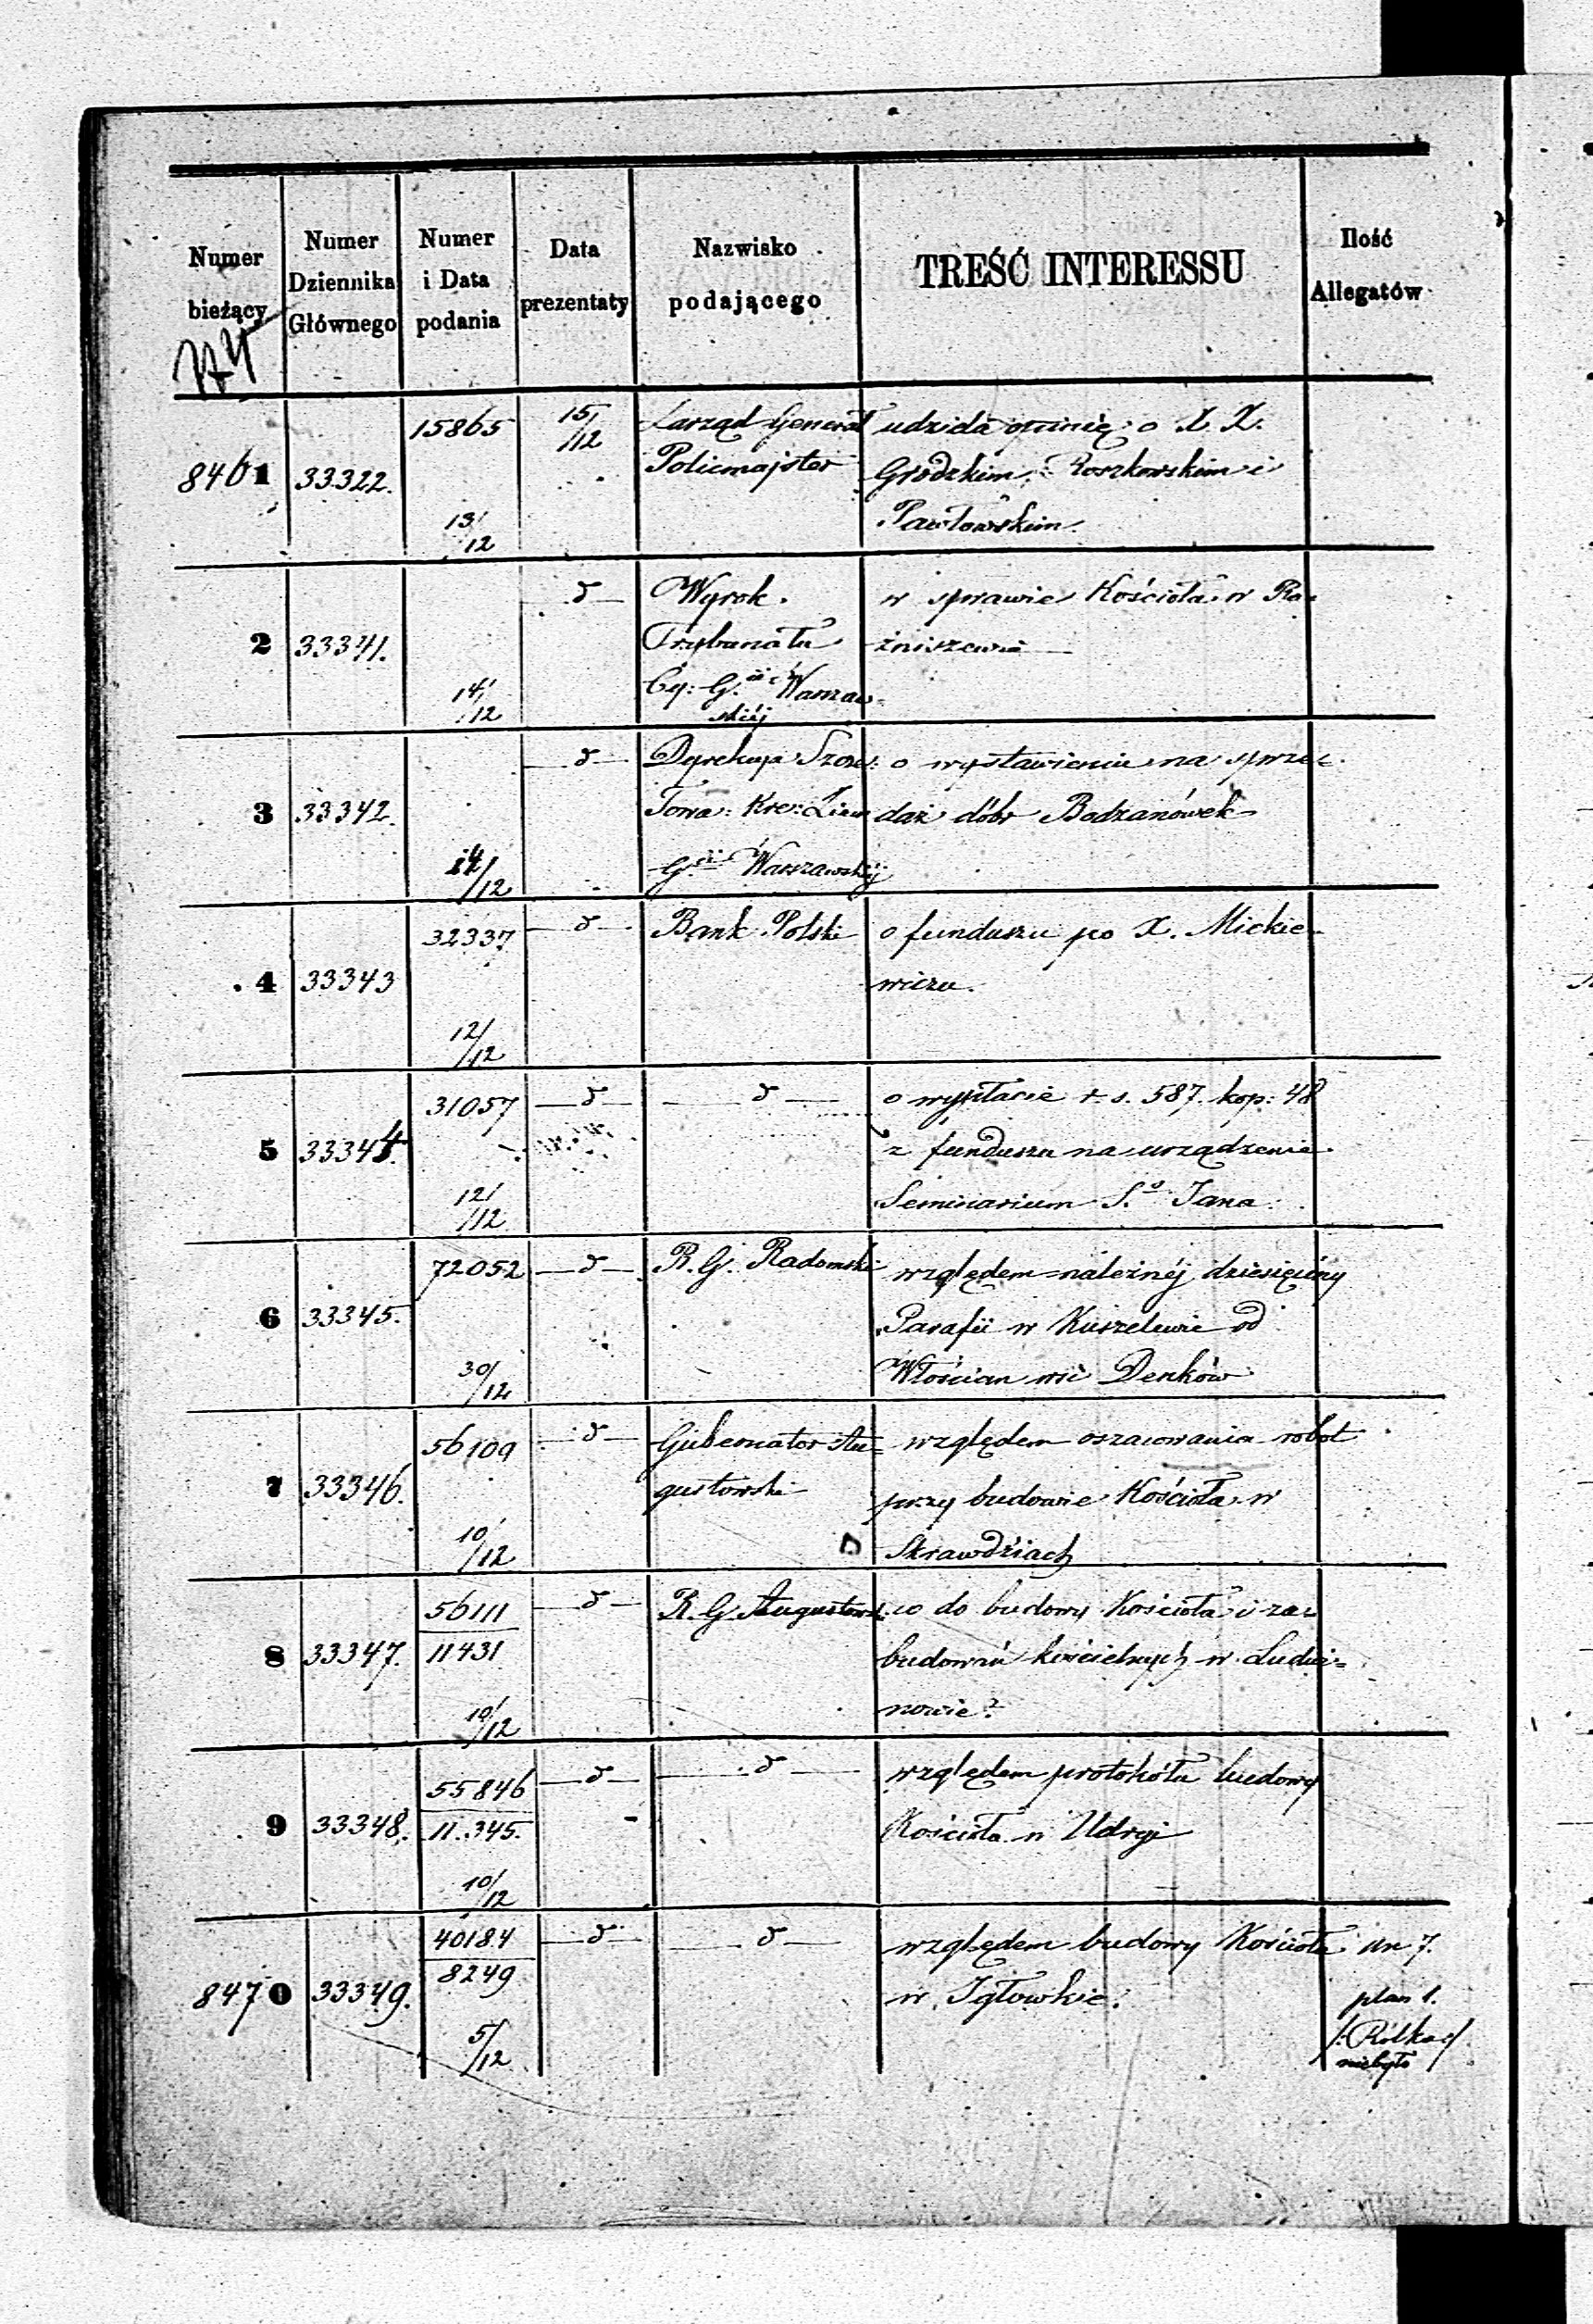 Numer bieżący
Numer Dziennika Głównego
Numer i Data podania
Data prezentaty
Nazwisko podającego
TREŚĆ INTERESSU
Ilość Allegatów
8461 33322. 15865 13/12 15/12
Zarząd Generał
Policmajster
udziela opinię o X. X.
Grodzkim, Roszkowskim i
Pawłowskim.
2 33341. 14/12 d
Wyrok
Trybunału
Cy: G.ii Warszaw-
skiéj
w sprawie Kościoła w Ra-
źniszewie
3 33342. 14/12 d
Dyrekcya Szcze:
Towa: Kre: Ziem
G.ii Warszawskiéj
o wystawieniu na sprze-
daż dóbr Bodzanówek
4 33343 32337 12/12 d
Bank Polski
o funduszu po X. Mickie-
wiczu.
5 33344. 31057 12/12 d d
o wypłacie r. s. 587. kop: 48
z funduszu na urządzenie
Seminarium S.o Jana.
6 33345. 72052 30/12 d
R. G. Radomski
względem należnéj dziesięciny
Parafii w Kuszelewie od
Włościan wsi Denków
7 33346. 56109 10/12 d
Gubernator Au-
gustowski
względem oszacowania robot
przy budowie Kościoła w
Skrawdziach
8 33347. 56111
11431 10/12 d
R. G. Augustows.
co do budowy Kościoła i za-
budowań kościelnych w Ludwi-
nowie?
9 33348. 55846
11.345. 10/12 d d
względem protokółu budowy
Kościoła w Udryi
8470 33349. 40184
8249 5/12 d d
względem budowy Kościoła
w Igłowkie.
un 7.
plan 1.
/:Rólka:/
niebyło